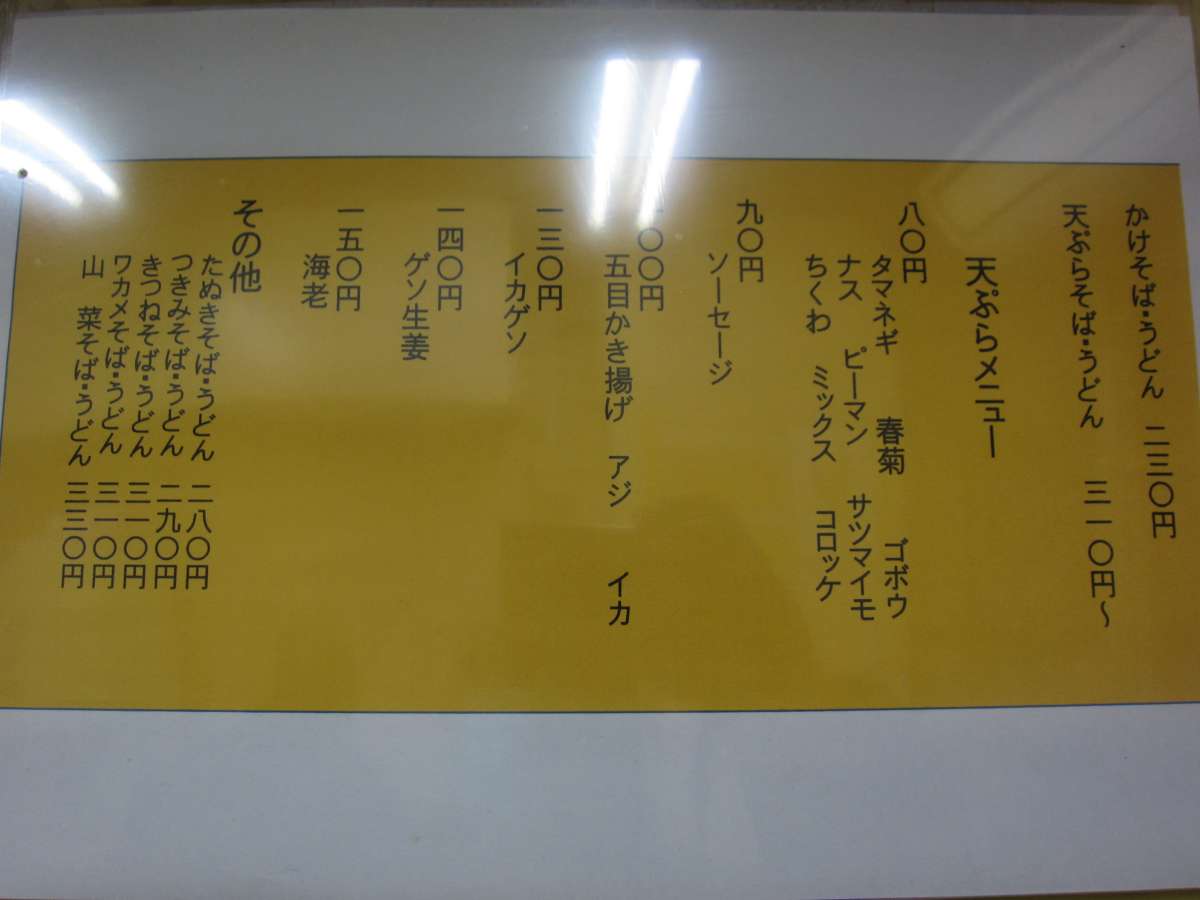 かけそば・うどん 二三〇円
天ぷらそば・うどん 三一〇円～
天ぷらメニュー
八〇円
タマネギ 春菊 ゴボウ
ナス ピーマン サツマイモ
ちくわ ミックス コロッケ
九〇円
ソーセージ
一〇〇円
五目かき揚げ アジ イカ
一三〇円
イカゲソ
一四〇円
ゲソ生姜
一五〇円
海老
その他
たぬきそば・うどん 二八〇円
つきみそば・うどん 二九〇円
きつねそば・うどん 三一〇円
ワカメそば・うどん 三一〇円
山 菜そば・うどん 三三〇円